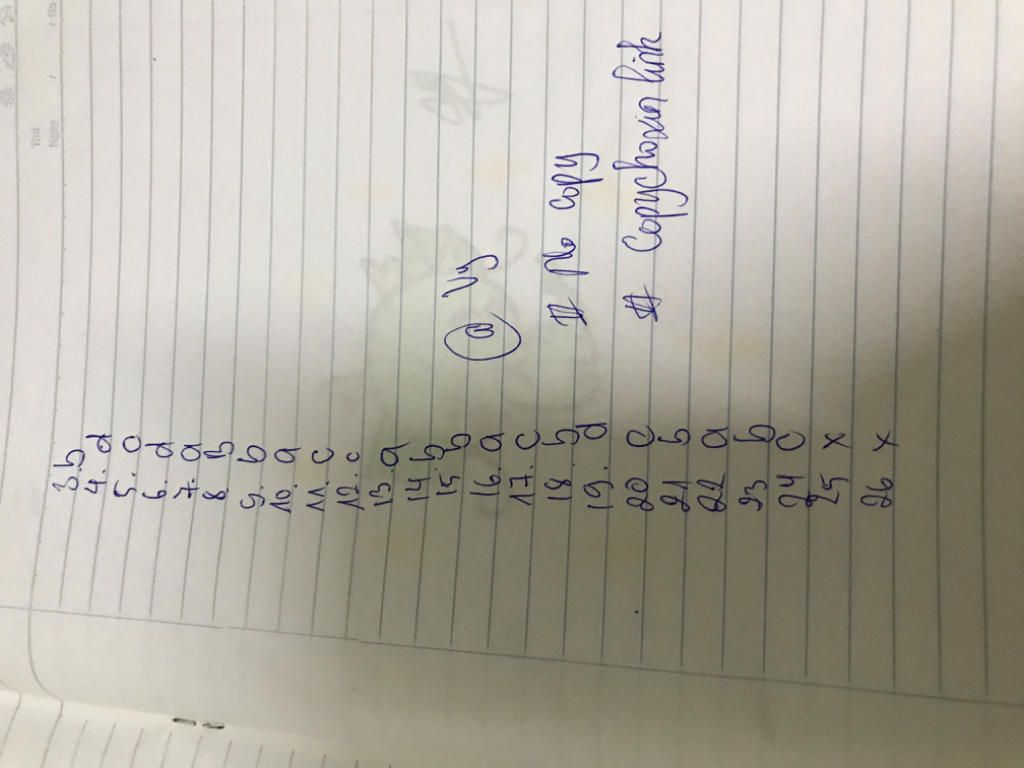 3. b
4. d
5. c
6. d
7. a
8. b
9. b
10. a
11. c
12. c
13. a
14. b
15. b
16. a
17. c
18. b
19. d
20 c
21 b
22 a
23 b
24 c
25 x
26 x
@ Vy
# copy
# Copychoxinkink
Thứ
Ngày